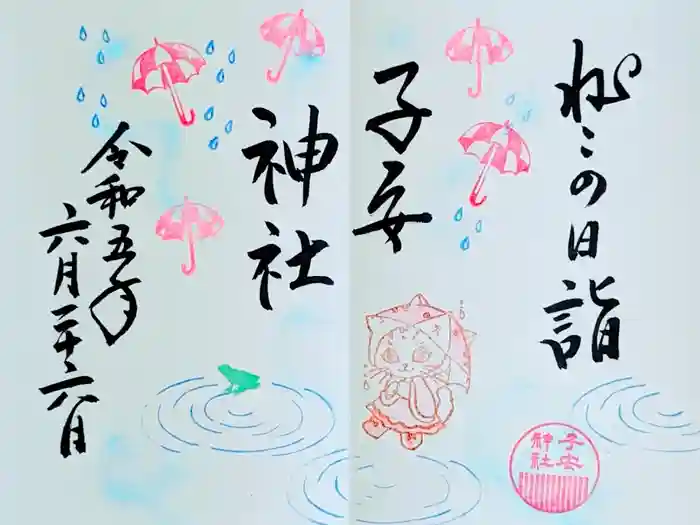 ねこの日詣
子安
神社
令和五年
六月二十六日
子安
神社